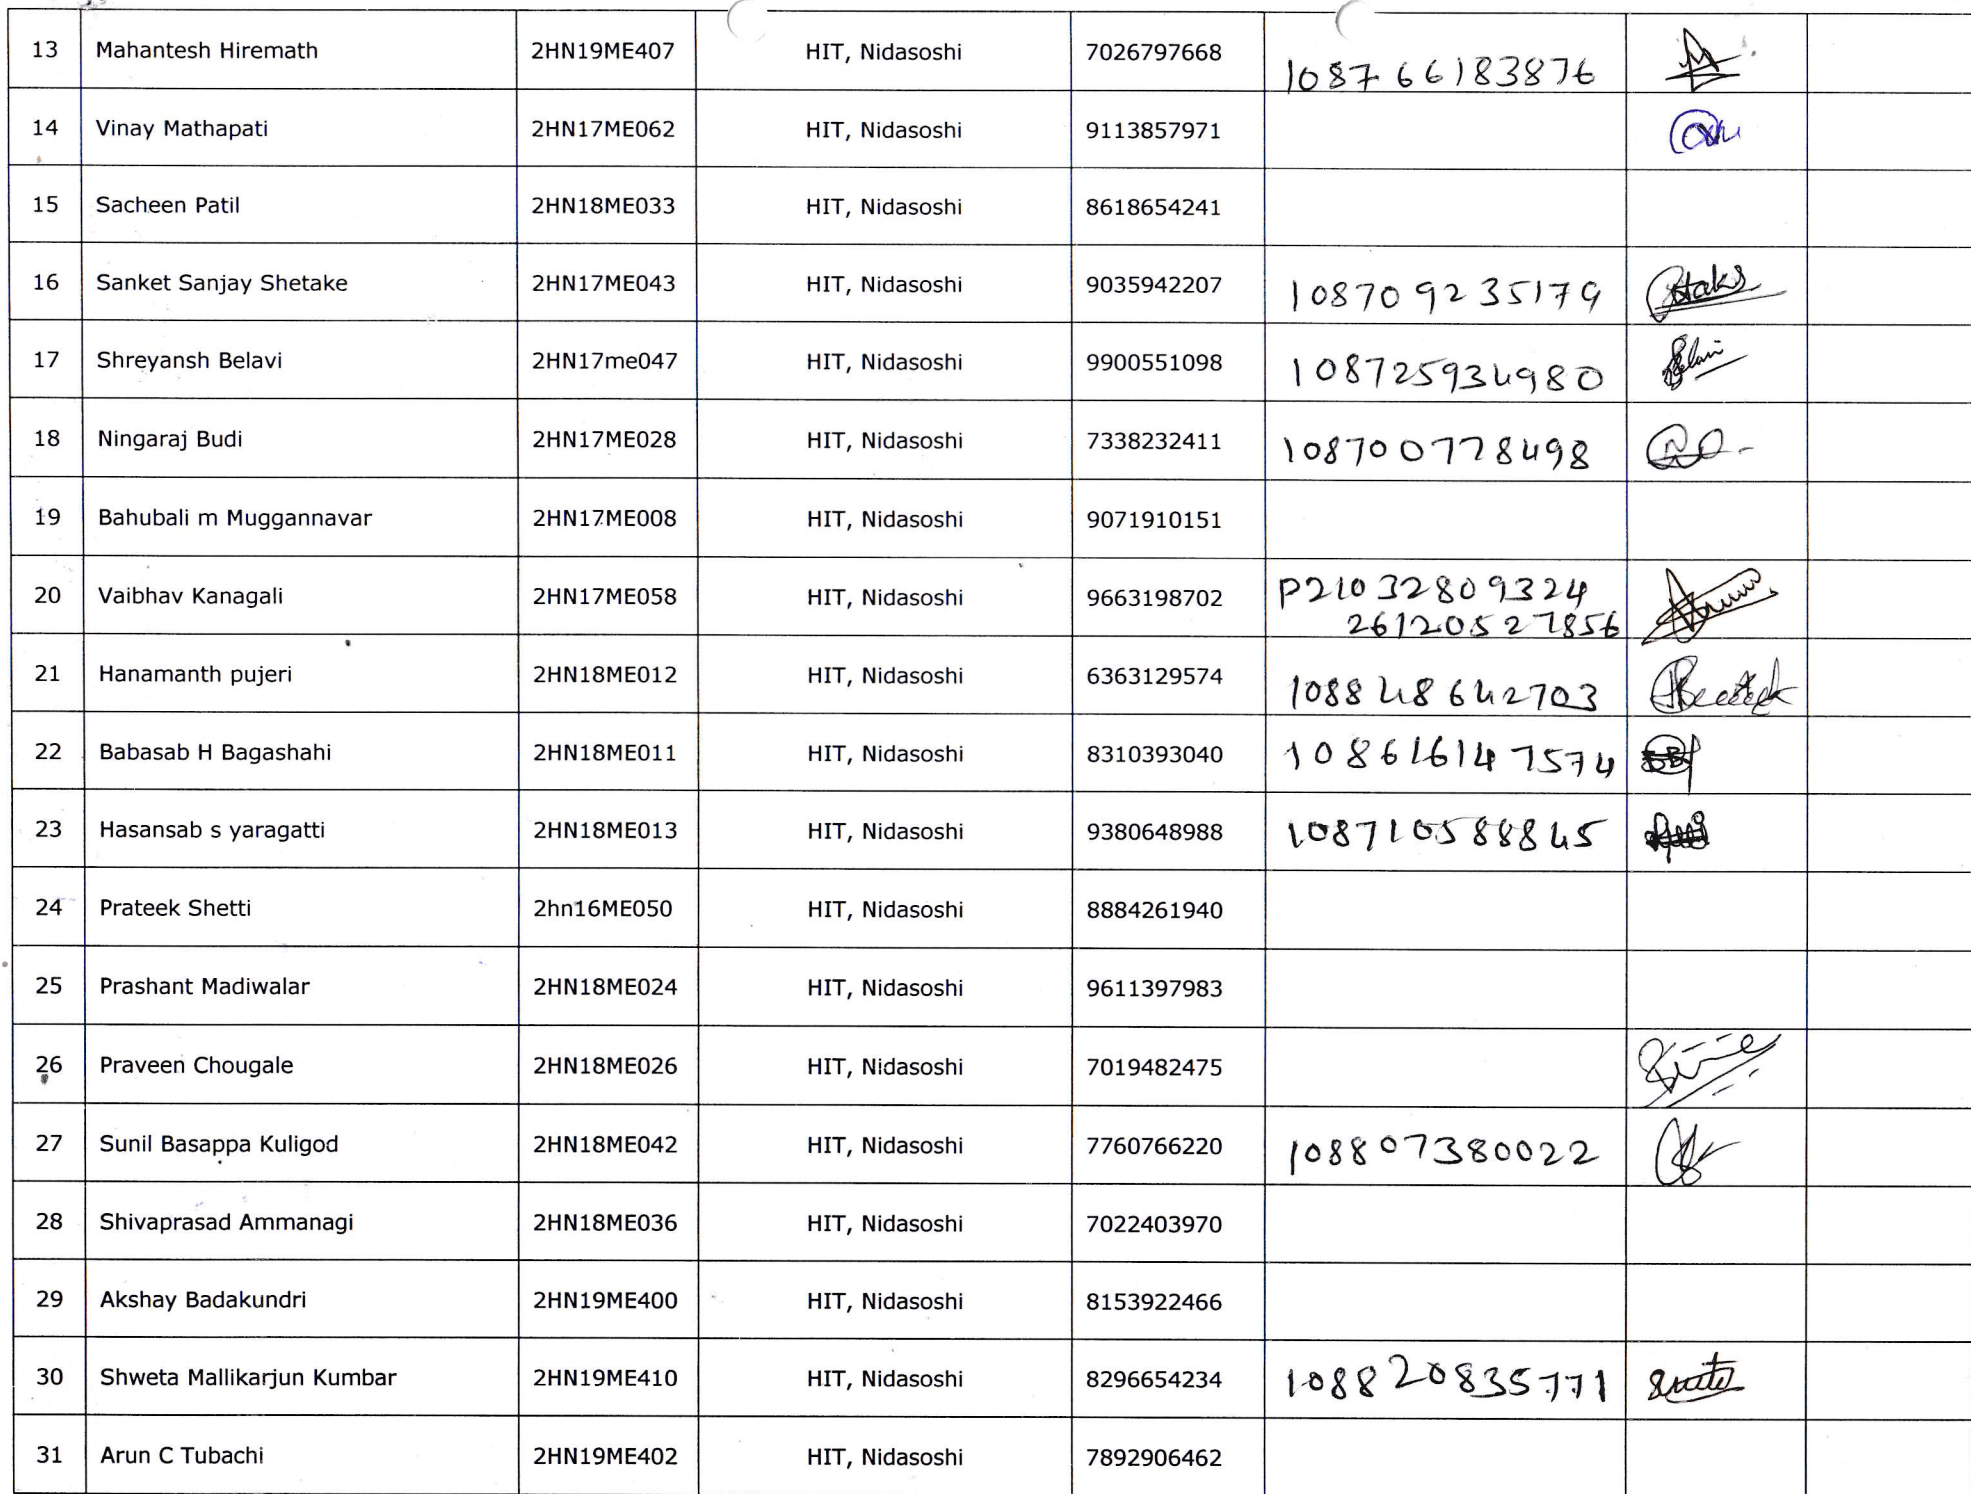 13 Mahantesh Hiremath 2HN19ME407 HIT, Nidasoshi 7026797668 108766183876
14 Vinay Mathapati 2HN17ME062 HIT, Nidasoshi 9113857971
15 Sacheen Patil 2HN18ME033 HIT, Nidasoshi 8618654241
16 Sanket Sanjay Shetake 2HN17ME043 HIT, Nidasoshi 9035942207 108709235179
17 Shreyansh Belavi 2HN17me047 HIT, Nidasoshi 9900551098 108725934980
18 Ningaraj Budi 2HN17ME028 HIT, Nidasoshi 7338232411 108700778498
19 Bahubali m Muggannavar 2HN17ME008 HIT, Nidasoshi 9071910151
20 Vaibhav Kanagali 2HN17ME058 HIT, Nidasoshi 9663198702 P21032809324
26120527856
21 Hanamanth pujeri 2HN18ME012 HIT, Nidasoshi 6363129574 108848642703
22 Babasab H Bagashahi 2HN18ME011 HIT, Nidasoshi 8310393040 108616147574
23 Hasansab s yaragatti 2HN18ME013 HIT, Nidasoshi 9380648988 108710588845
24 Prateek Shetti 2hn16ME050 HIT, Nidasoshi 8884261940
25 Prashant Madiwalar 2HN18ME024 HIT, Nidasoshi 9611397983
26 Praveen Chougale 2HN18ME026 HIT, Nidasoshi 7019482475
27 Sunil Basappa Kuligod 2HN18ME042 HIT, Nidasoshi 7760766220 108807380022
28 Shivaprasad Ammanagi 2HN18ME036 HIT, Nidasoshi 7022403970
29 Akshay Badakundri 2HN19ME400 HIT, Nidasoshi 8153922466
30 Shweta Mallikarjun Kumbar 2HN19ME410 HIT, Nidasoshi 8296654234 108820835771
31 Arun C Tubachi 2HN19ME402 HIT, Nidasoshi 7892906462